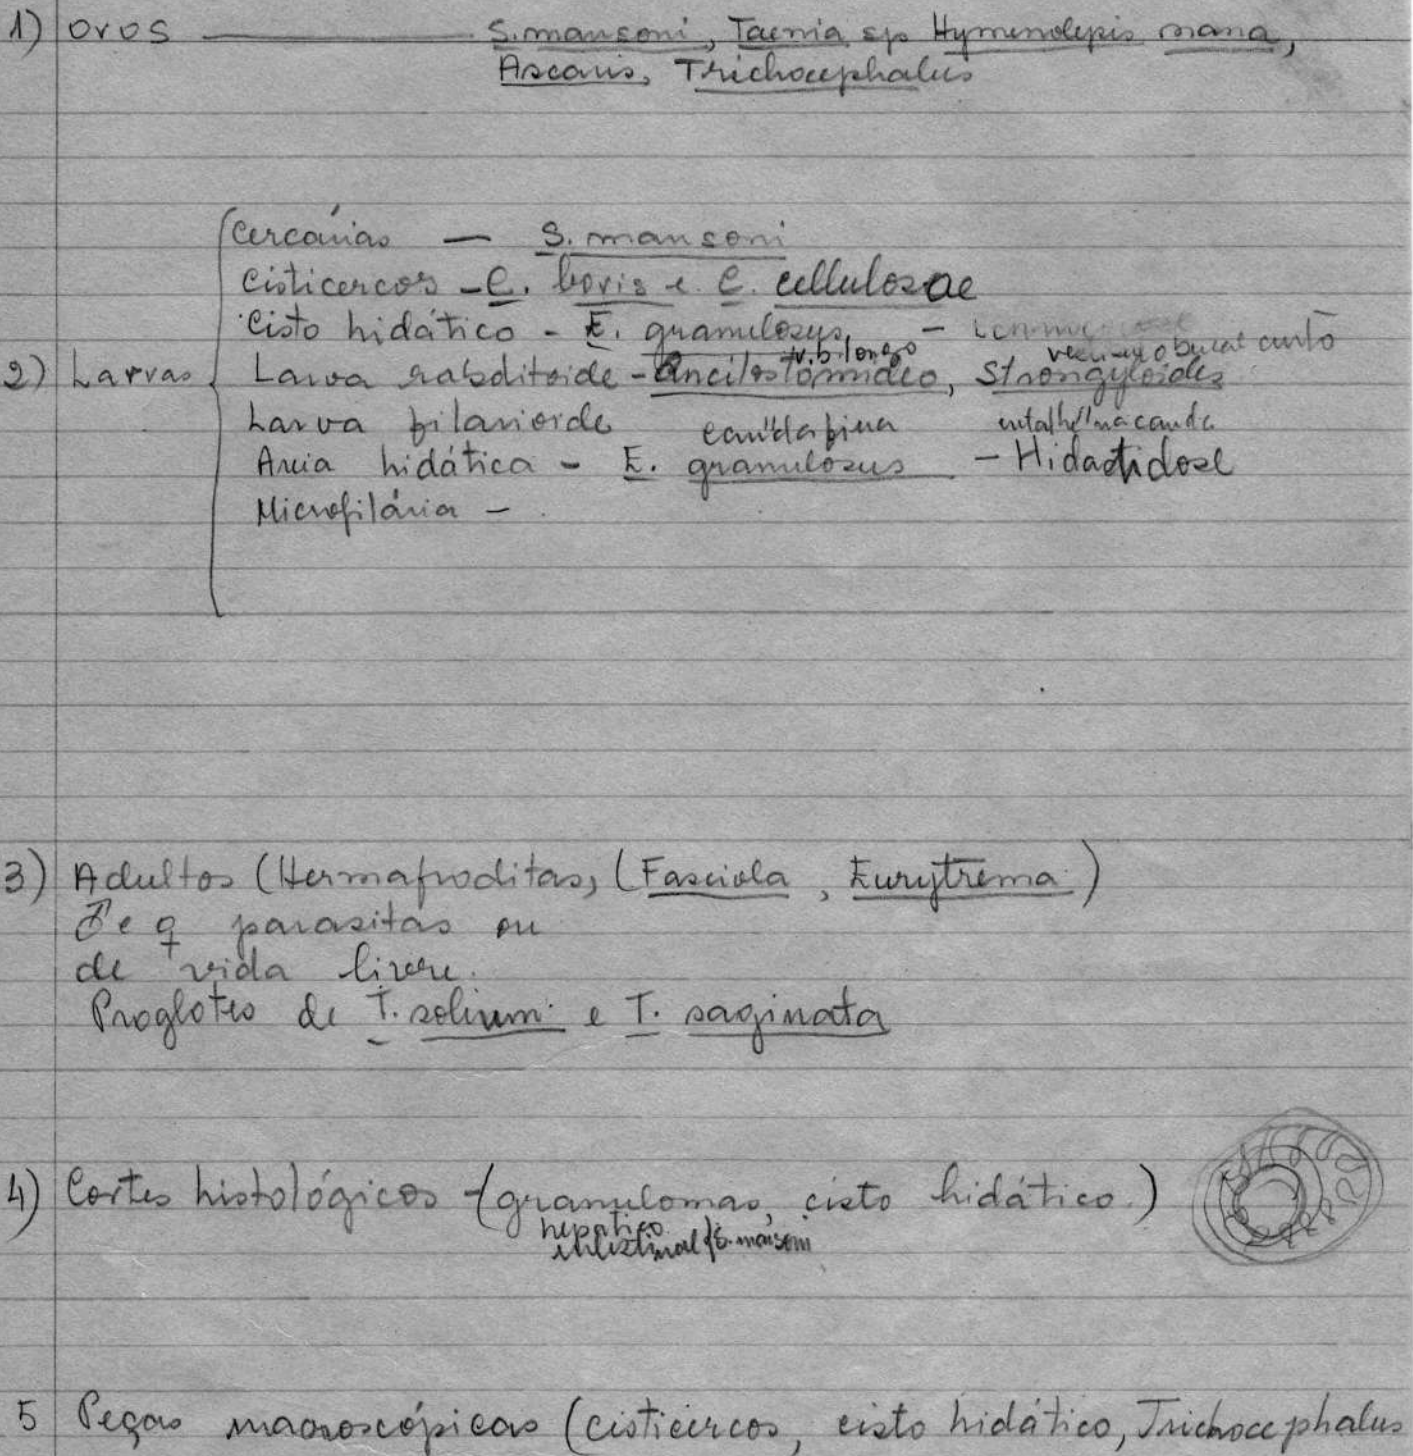 1) Ovos — S. mansoni, Taenia sp Hymenolepis nana,
Ascaris, Trichocephalus
Cercárias — S. mansoni
Cisticercos - C. bovis e C. cellulosae
Cisto hidático - E. granulosus -
v. b. longo vestíbulo bucal curto
2) Larvas Larva rabditoide - Ancilostomídeo, Strongyloides
Larva filarioide cauda fina entalhe na cauda
Areia hidática - E. granulosus - Hidatidose
Microfilária -
3) Adultos (Hermafroditas, (Fasciola, Eurytrema)
♂ e ♀ parasitas ou
de vida livre.
Proglotes de T. solium e T. saginata
4) Cortes histológicos - (granulomas, cisto hidático.)
hepático
intestinal S. mansoni
5 Peças macroscópicas (cisticercos, cisto hidático, Trichocephalus